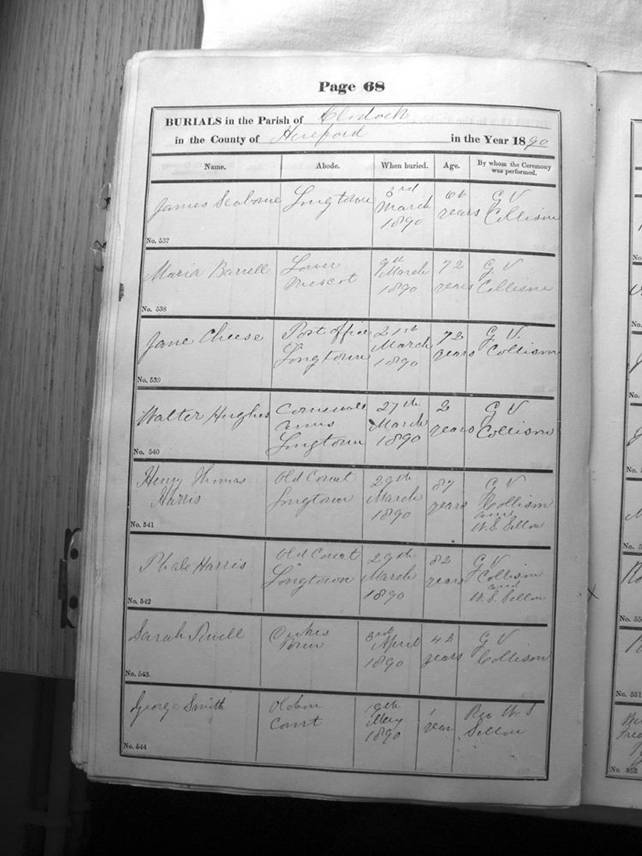 Page 68
BURIALS in the Parish of Clodock
in the County of Hereford in the Year 1890
Name. Abode. When buried. Age. By whom the Ceremony was performed.
James Seaborne Longtown 3rd March 1890 years G V Collison
No. 537
Maria Barrell Lower Prescot 9th March 1890 72 years G. V Collison
No. 538
Jane Cheese Post Office Longtown 21st March 1890 72 years G. V. Collison
No. 539
Walter Hughes Cornewall Arms Longtown 27th March 1890 2 years G V Collison
No. 540
Henry Thomas Harris Old Court Longtown 29th March 1890 87 years G V Collison and W. S.
No. 541
Harris Old Court Longtown 29th March 1890 82 years G V Collison and W. S.
No. 542
Sarah 3rd April 1890 42 years G V Collison
No. 543
George Smith Court May 1890 1 year Rev W S
No. 544